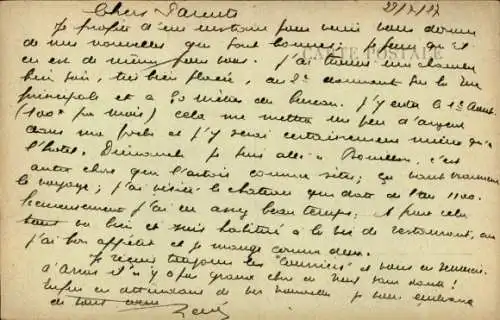 Chers Parents 27/7/27
Je profite d'un instant pour venir vous donner
de mes nouvelles qui sont bonnes; je pense qu'il
CARTE POSTALE
en est de même pour vous. J'ai trouvé une chambre
bien, très bien placée, au 2e donnant sur la rue
principale et à 50 mètres du bureau. J'y entre le 1er Août.
(100f par mois) cela me mettra un peu d'argent
dans ma poche et j'y serai certainement mieux qu'à
l'hôtel. Dimanche je suis allé à Bouillon, c'est
autre chose que l'Artois comme sites; ça vaut vraiment
le voyage; j'ai visité le château qui date de l'an 1100.
Heureusement j'ai eu assez beau temps; à part cela
tout va bien et suis habitué à la vie de restaurant, car
j'ai bon appétit et je mange comme deux.
Je reçois toujours les "Courriers" et vous en remercie.
à Arras il n'y a pas grand chose de neuf sans doute!
Enfin en attendant de vos nouvelles je vous embrasse
de tout cœur